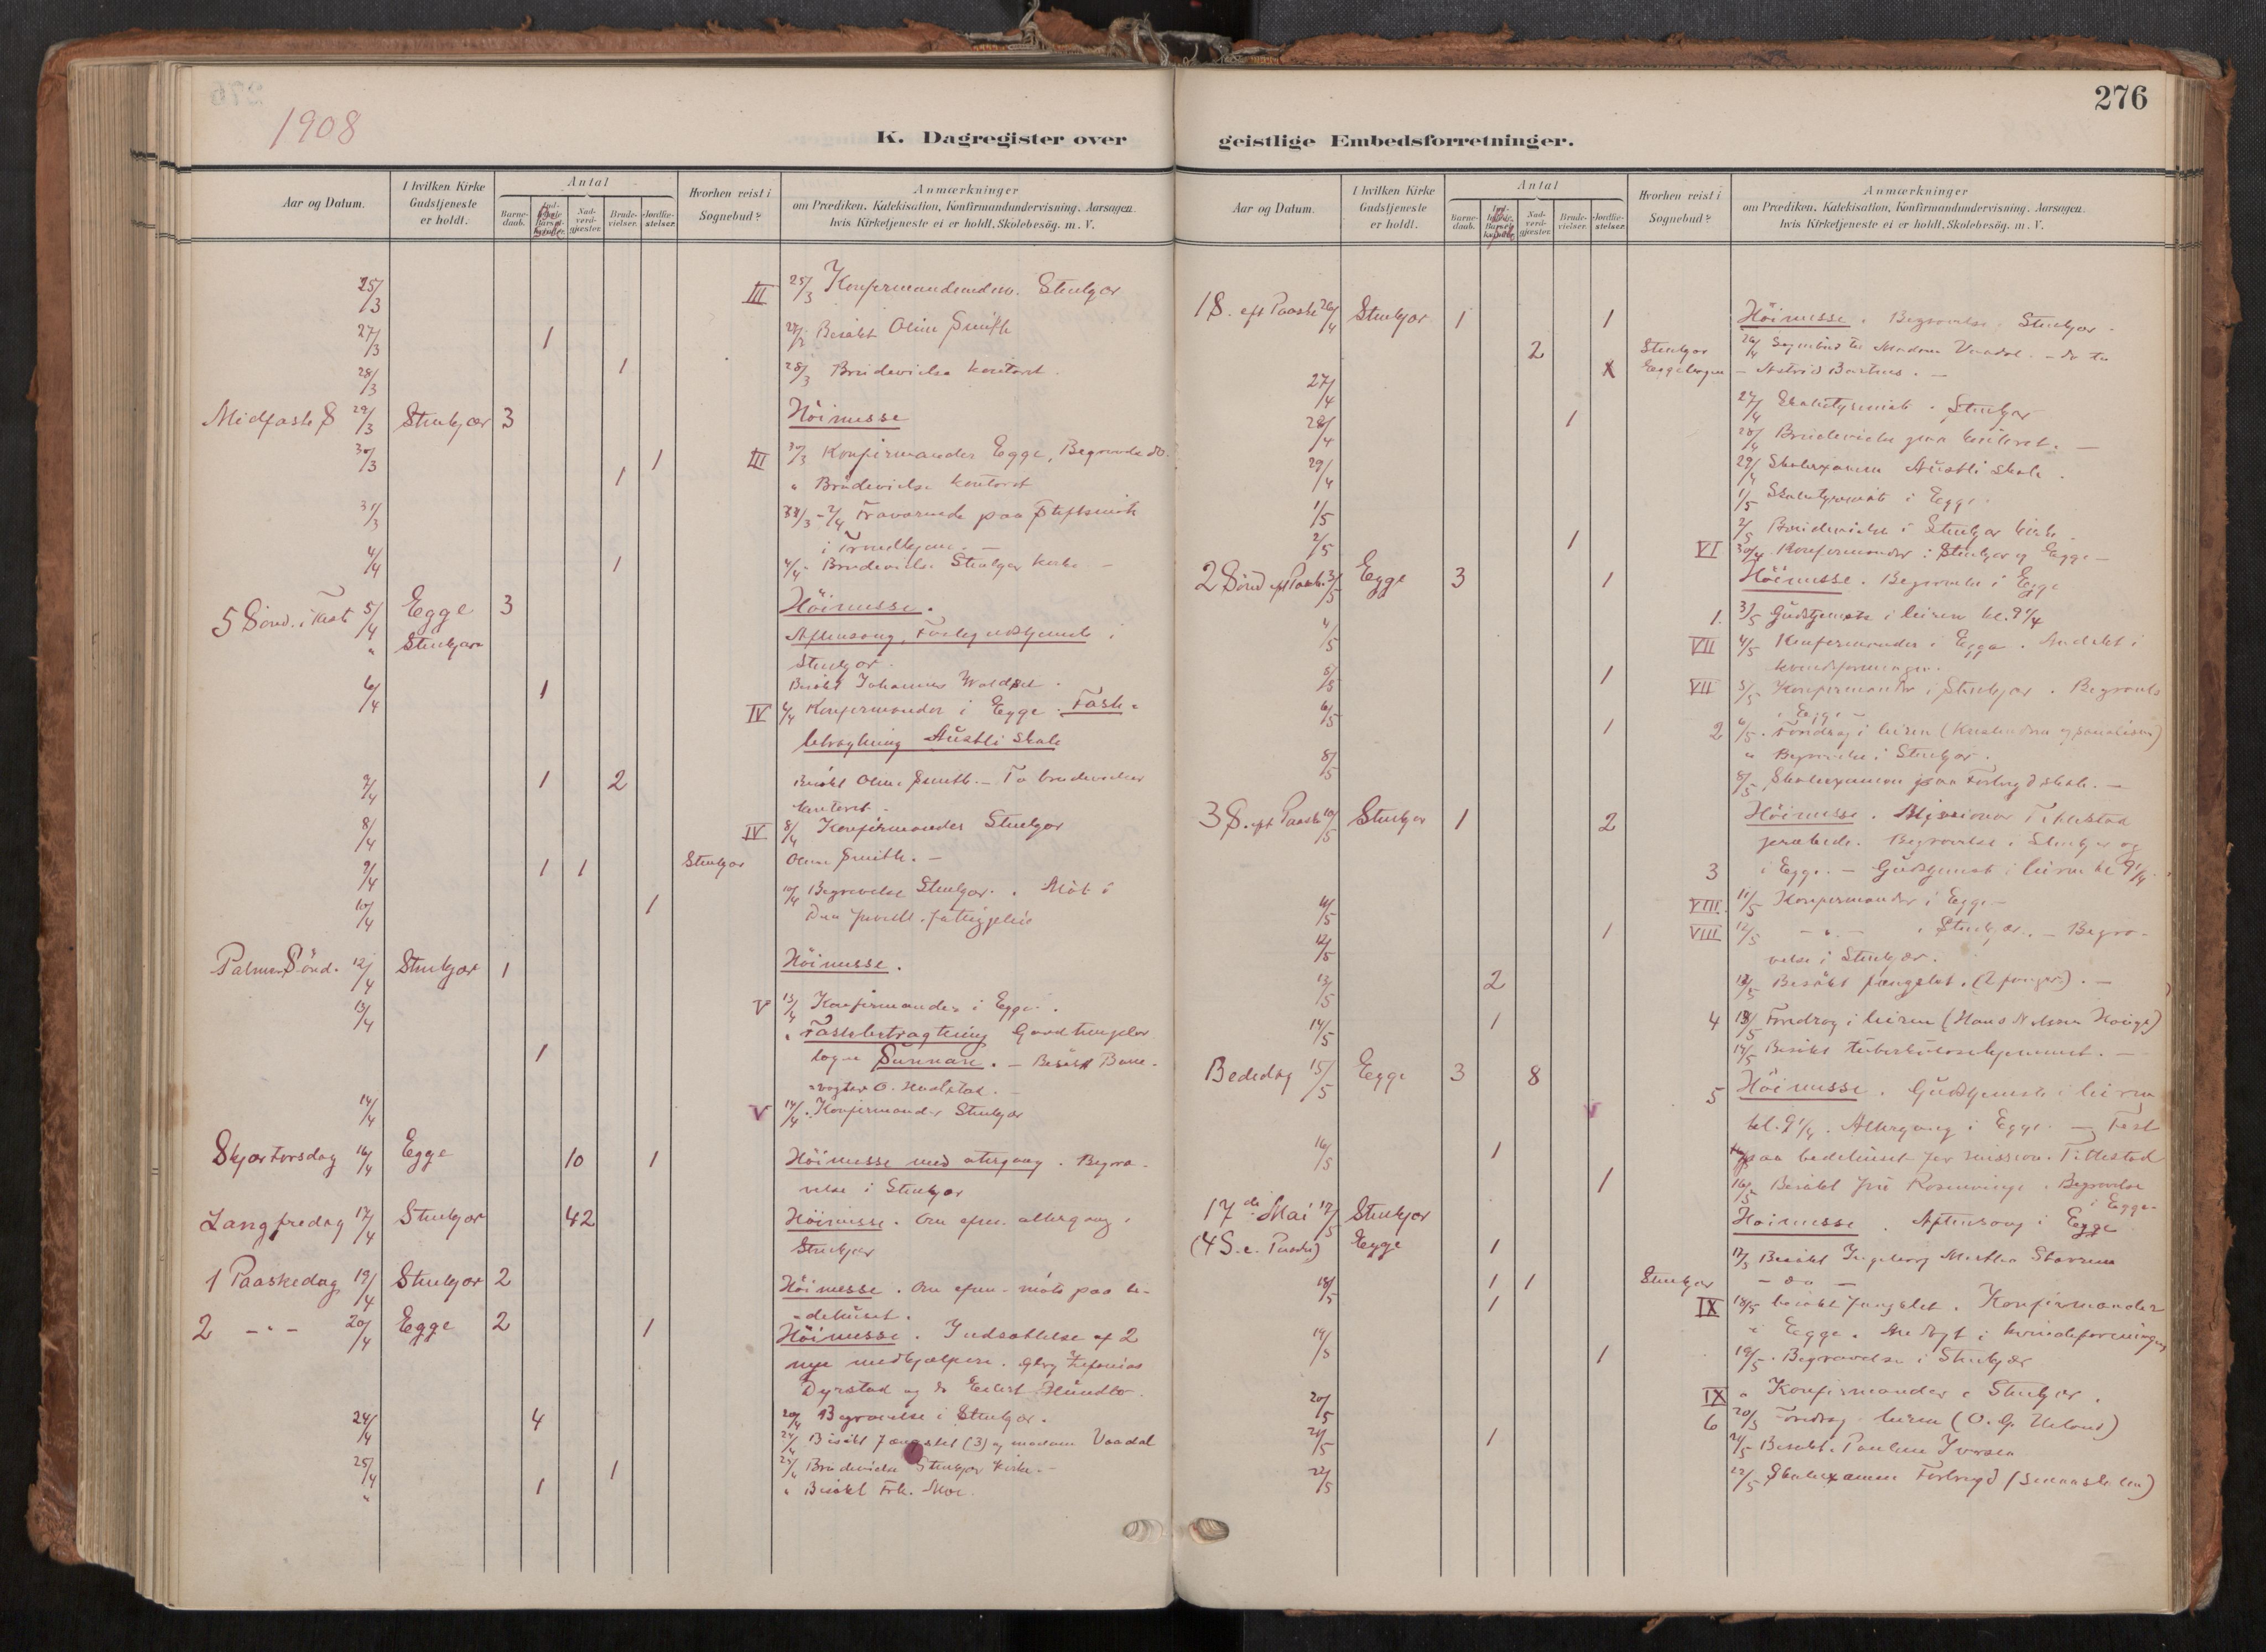 1908
K. Dagregister over
Aar og Datum.
I hvilken Kirke Gudstjeneste er holdt.
Antal
Barne-daab.
Nad-verd-gjæster.
Brude-vielser.
Jordfæ-stelser.
Hvorhen reist i Sognebud?
Anmærkninger
om Prædiken, Katekisation, Konfirmandundervisning, Aarsagen,
hvis Kirketjeneste ei er holdt, Skolebesøg. m. V.
25/3 III 25/3 Konfirmandunderv. Stenkjær
27/3 1 27/3 Besøkt Oline Smith
28/3 1 28/3 Brudevielse kontoret.
Midfaste S 29/3 Stenkjær 3 Höimesse
30/3 1 III 30/3 Konfirmander Egge, Begravelse do.
1 " Brudevielse kontoret
31/3 31/3 - 2/4 Fraværende paa Stiftsmöte
i Trondhjem. -
4/4 1 4/4 - Brudevielse Stenkjær kirke -
5 Sönd. i Faste 5/4 Egge 3 Höimesse.
" Stenkjær Aftensang, Fastegudstjeneste i
Stenkjær.
6/4 1 Besökt Johannes
IV 6/4 Konfirmander i Egge. Faste-
betragtning Austli skole
7/4 1 2 Besökt Oline Smith. - To brudevielser
kontoret.
8/4 IV 8/4 Konfirmander Stenkjær
9/4 1 1 Stenkjær Oline Smith. -
10/4 1 10/4 Begravelse Stenkjær. Möte i
Palmesönd. 12/4 Stenkjær 1 Höimesse.
13/4 V 13/4 Konfirmander i Egge.
" Fastebetragtning
1 Sunnan. - Besökt Bane-
-vogter O.
14/4 V 14/4. Konfirmander Stenkjær
Skjærtorsdag 16/4 Egge 10 1 Höimesse med altergang. Begra-
velse i Stenkjær
Langfredag 17/4 Stenkjær 42 Höimesse. Om efterm. altergang i
Stenkjær
1 Paaskedag 19/4 Stenkjær 2 Höimesse. Om efterm. möte paa be-
-dehuset.
2 - " - 20/4 Egge 2 1 Höimesse. Indsættelse af 2
nye medhjælpere. Gbrg Zefanias
Dyrstad og do Eilert
20/4 Begravelse i Stenkjær.
24/4 4 24/4 Besökt Fængslet (3) og madam Vaadal
25/4 1 25/4 Brudevielse Stenkjær kirke. -
" 1 " Besökt Frk. Moe.
276
geistlige Embedsforretninger.
Aar og Datum.
I hvilken Kirke Gudstjeneste er holdt.
Antal
Barne-daab.
Nad-verd-gjæster.
Brude-vielser.
Jordfæ-stelser.
Hvorhen reist i Sognebud?
Anmærkninger
om Prædiken, Katekisation, Konfirmandundervisning, Aarsagen,
hvis Kirketjeneste ei er holdt, Skolebesøg. m. V.
1 S. eft Paaske 26/4 Stenkjær 1 1 Höimesse. Begravelse Stenkjær.
2 Stenkjær 26/4 Sognebud til Madam Vaadal. - do til
Eggebogen - Astrid -
27/4 27/4 Skolestyremöte. Stenkjær
28/4 1 28/4 Brudevielse paa kontoret. -
29/4 29/4 Skoleexamen Austli skole.
1/5 1/5 Skolestyremöte i Egge.
2/5 1 2/5 Brudevielse i Stenkjær kirke.
VI 30/4 Konfirmander i Stenkjær og Egge -
2 Sönd eft Paaske 3/5 Egge 3 1 Höimesse. Begravelse i Egge
1. 3/5 Gudstjeneste i leiren kl. 9 1/4
4/5 VII 4/5 Konfirmander i Egge. Andakt i
kvindeforeningen.
5/5 1 VII 5/5 Konfirmander i Stenkjær. Begravelse
i Egge -
6/5 2 6/5. Foredrag i leiren
1 " Begravelse i Stenkjær.
8/5 8/5 Skoleexamen paa Fosbryd skole. -
3 S. eft Paaske 10/5 Stenkjær 1 2 Höimesse. Missionær Tittestad
prækede. Begravelse i Stenkjær og
3 i Egge. - Gudstjeneste i leiren kl 9 1/4.
11/5 VIII. 11/5 Konfirmander i Egge -
12/5 1 VIII 12/5 - " - i Stenkjær. - Begra-
velse i Stenkjær.
13/5 2 13/5 Besökt fængslet. (2 fanger). -
4 13/5 Foredrag i leiren (Hans Nielsen Hauge)
14/5 1 14/5 Besökt tuberkulosehjemmet. -
Bededag 15/5 Egge 3 8 5 Höimesse. Gudstjeneste i leiren
kl. 9 1/4. Altergang i Egge. - Fest
paa bedehuset for mission. Tittestad
16/5 1 1 16/5 Besökt fru Rosenvinge. Begravelse
i Egge -
17de Mai 17/5 Stenkjær Höimesse. Aftensang i Egge
(4 S. e. Paaske) Egge 1 17/5 Besökt Ingeborg Martha
18/5 1 1 Stenkjær - do -
1 IX 18/5 besökt fængslet. Konfirmander
i Egge. Andagt i kvindeforeningen
19/5 1 19/5. Begravelse i Stenkjær
IX " Konfirmander i Stenkjær.
20/5 6 20/5 Foredrag leiren (O. G. Ueland)
21/5 1 21/5 Besökt. Pauline Iversen
22/5 22/5 Skoleexamen Fosbryd (smaaskolen)